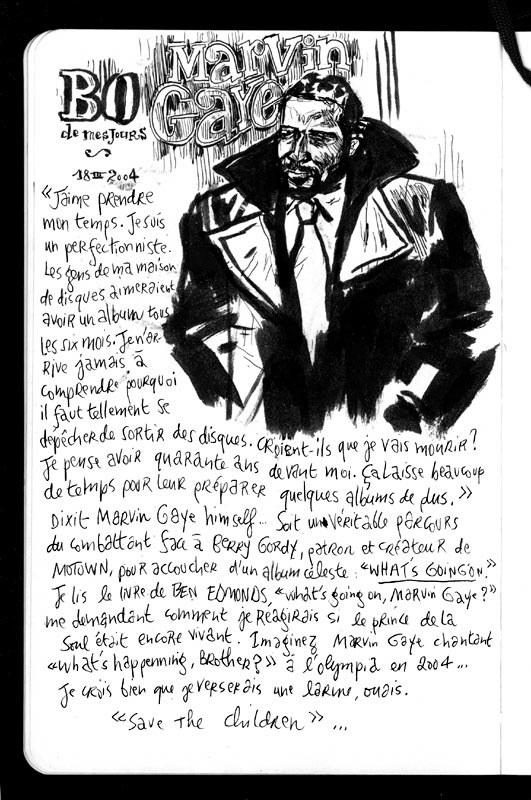 Marvin
Gaye
BO
de mes jours
18 III 2004
"J'aime prendre
mon temps. Je suis
un perfectionniste.
Les gens de ma maison
de disques aimeraient
avoir un album tous
les six mois. Je n'ar-
rive jamais à
comprendre pourquoi
il faut tellement se
dépêcher de sortir des disques. Croient-ils que je vais mourir?
Je pense avoir quarante ans devant moi. Ça laisse beaucoup
de temps pour leur préparer quelques albums de plus. »
Dixit Marvin Gaye himself... Soit un véritable parcours
du combattant face à BERRY GORDY, patron et créateur de
MOTOWN, pour accoucher d'un album céleste : "WHAT'S GOING ON."
Je lis le livre de BEN EDMONDS, "what's going on, Marvin Gaye?"
me demandant comment je réagirais si le prince de la
Soul était encore vivant. Imaginez Marvin Gaye chantant
"what's happenning, Brother?" à l'olympia en 2004...
Je crois bien que je verserais une larme, ouais.
"Save The Children" ...